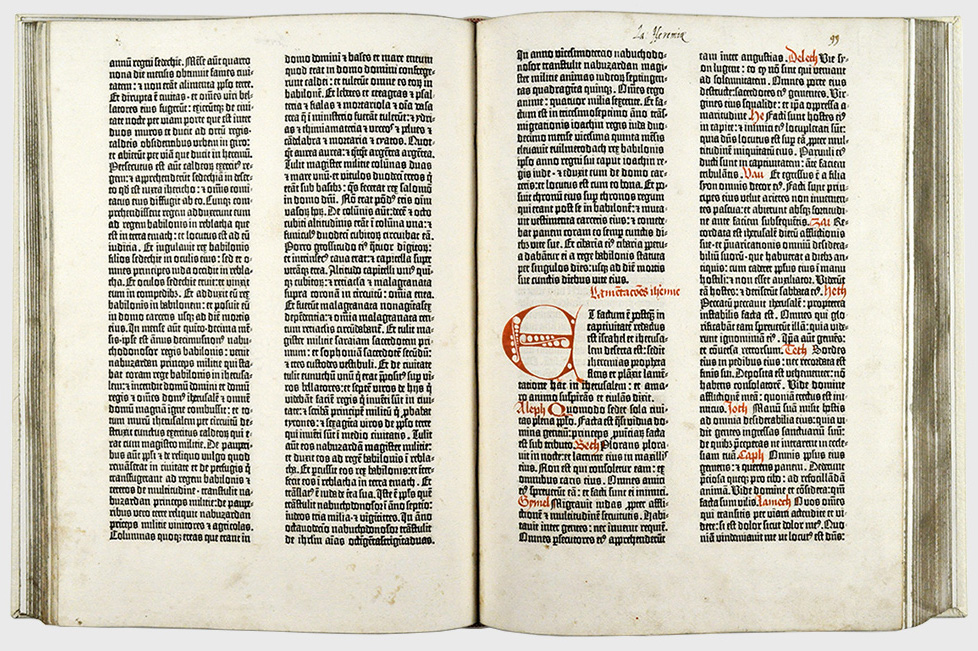 annū regni sedechie. Mēse aūt quarto
nona die mensis obtinuit fames civi-
tatem: ⁊ non erāt alimenta pplo terre.
Et dirupta ē civitas · et om̄es viri bel-
latores eius fugerūt: exierūtq; de civi-
tate nocte per viam porte que est inter
duos muros et ducit ad ortū regis ·
caldeis obsidentibus urbem in giro:
et abierūt per viā que ducit in heremū.
Persecutus est aūt caldeorū exercit⁹ re-
gem: ⁊ apprehenderūt sedechiā in deser-
to qd̄ est iuxta ihericho: ⁊ om̄is comi-
tatus eius diffugit ab eo. Cumq; com-
prehendissent regem adduxerūt eum
ad regem babilonis in reblatha que
est in terra emath: et locutus est ad eū
iudicia. Et iugulavit rex babilonis
filios sedechie in oculis eius: sed et o-
mnes principes iuda occidit in rebla-
tha. Et oculos sedechie eruit: et vinxit
eum in compedib⁹. Et adduxit eū rex
babilonis in babilonem: et posuit eū
in domo carceris usq; ad diē mortis
eius. In mense aūt quīto · decima mē-
sis · ipse est annus decimusnon⁹ nabu-
chodonosor regis babilonis: venit
nabuzardan princeps milicie qui sta-
bat coram rege babilonis in iherusa-
lem: ⁊ incendit domū domini et domū
regis et om̄es dom⁹ iherusalē ⁊ omnē
domū magnā igne combussit: et to-
tum murū iherusalem per circuitū de-
struxit cunctus exercitus caldeorū qui e-
rat cum magistro milicie. De pauperi-
bus aūt ppli ⁊ de reliquo vulgo quod
remāserat in civitate et de perfugis qui
transfugerant ad regem babilonis et
ceteros de multitudine · transtulit na-
buzardan princeps milicie: de paupe-
ribus vero terre reliquit nabuzardan
princeps milicie vinitores ⁊ agricolas.
Columnas quoq; ereas que erant in
domo domini ⁊ bases et mare eneum
quod erat in domo domini confrege-
runt caldei: et tulerūt omne es eorū in
babilonē. Et lebetes et creagras ⁊ psal-
teria ⁊ fialas ⁊ mortariola ⁊ om̄a vasa
erea q̄ ī ministerio fuerāt tulerūt: ⁊ ydri-
as ⁊ thimiamateria ⁊ urceos ⁊ pelves ⁊
cādelabra ⁊ mortaria ⁊ cyatos. Quot-
q̄t aurea aurea: ⁊ q̄tq̄t argētea argētea.
Tulit magister milicie colūnas duas
⁊ mare unū · et vitulos duodecī ereos q̄
erāt sub basib⁹: q̄s fecerat rex salomō
in domo dn̄i. Nō erat pōd⁹ eris om̄iū
vasorū hor̄. De colūnis aūt: decē ⁊ octo
cubiti altitudinis erāt ī colūna una: ⁊
funicul⁹ duodecī cubitorū circuibat eā.
Porro grossitudo ei⁹ q̄tuor digitorū:
et intrinsec⁹ cava erat: ⁊ capitella super
utrāq; erea. Altitudo capitelli uni⁹ qui-
q; cubitorū: ⁊ reciacula ⁊ malagranata
supra coronā in circuitu: om̄ia erea.
⁊ om̄ia malagranata cen-
tum reciaculis circūdabant̄. Et tulit ma-
gister milicie saraiam sacerdotem pri-
mum: et sophoniā sacerdotē secūdū:
⁊ tres custodes vestibuli. Et de civitate
tulit eunuchū unū q̄ erat p̄posit⁹ sup vi-
ros bellatores: et septē viros de hijs q̄
videbāt faciē regis q̄ inventi sūt in civi-
tate: ⁊ scribā principē militū q̄ pbabat
tyrones: ⁊ sexagīta viros de pplo terre
qui inventi sūt ī medio civitatis. Tulit
aūt eos nabuzardā magister milicie:
et duxit eos ad regē babilonis ī rebla-
tha. Et pcussit eos rex babilonis: et īter-
fecit eos ī reblatha in terra emath. Et
trāslat⁹ ē iuda de t̄ra sua. Iste ē ppl⁹ quē
trāstulit nabuchodonosor ī ano septīo:
iudeos tria milia · ⁊ vigītitres. In āno
octavodecīo nabuchodonosor trāstulit
de ihrl̄m aīas octīgētas trigītaduas.
La Ieremiæ
99
In anno vicesimotercio nabuchodo-
nosor transtulit nabuzardan magi-
ster milicie animas iudeorum septingen-
tas quadraginta quinq;. Omnes ergo
anime: quatuor milia sexcente. Et fa-
ctum est in tricesimoseptimo āno trās-
migrationis ioachin regis iuda · duo-
decimo mense · vicesima quinta mēsis
elevavit evilmerodach rex babilonis
ipso anno regni sui caput ioachin re-
gis iude · ⁊ eduxit eum de domo car-
ceris: et locutus est cum eo bona. Et po-
suit thronū eius sup thronos regum
qui erant post se in babilone: ⁊ muta-
vit vestimenta carceris eius: ⁊ comede-
bat panem coram eo semp cunctis di-
eb⁹ vite sue. Et cibaria ei⁹ cibaria ppetu-
a dabātur ei a rege babilonis statuta
per singulos dies: usq; ad diē mortis
sue cunctis diebus vite eius.
Lamētacōes ih̄emie
Et factum ē postq̄ in
captivitatē redactus
est israhel et iherusa-
lem deserta est: sedit
ieremias propheta
flens et planxit lamē-
tatione hac in iherusalem: et ama-
ro animo suspirās et eiulās dixit.
Aleph Quomodo sedet sola civi-
tas plena pplo. Facta est q̄si vidua do-
mina gentiū: princeps pvīciarū facta
est sub tributo. Beth Plorans plora-
vit in nocte: et lacrime eius in maxill⁹
eius. Non est qui consoletur eam: ex
omnibus caris eius. Omnes amici
ei⁹ spreverūt eā: et facti sunt ei inimici.
Gymel Migravit iudas propter affli-
ctionē ⁊ multitudinē servitutis. Habi-
tavit inter gentes: nec invenit requiē.
Omnes psecutores ei⁹ apprehenderūt
eam inter angustias. Deleth Vie sy-
on lugent: eo q̄ nō sint qui veniant
ad solennitatem. Omnes porte eius
destructe: sacerdotes ei⁹ gementes. Vir-
gines eius squalide: et ipa oppressa a-
maritudine. He Facti sunt hostes ei⁹
in capite: ⁊ inimici ei⁹ locupletati sūt:
quia dn̄s locutus est sup eā ppter mul-
titudinē iniquitatū eius. Parvuli ei⁹
ducti sunt in captivitatem: āte faciem
tribulātis. Vau Et egressus ē a filia
syon omnis decor ei⁹. Facti sunt prin-
cipes eius velut arietes non invenien-
tes pascua: et abierunt absq; fortitudi-
ne ante faciem subsequētis. Zai Re-
cordata est iherusalē dierū afflictionis
sue · et p̄varicationis omniū desidera-
biliū suorū · que habuerat a dieb⁹ an-
tiquis: cum caderet ppl̄us eius ī manu
hostili: ⁊ non esset auxiliator. Viderūt
eā hostes: ⁊ deriserūt sabbata ei⁹. Heth
Peccatū peccavit iherusalē: propterea
instabilis facta est. Omnes qui glo-
rificabāt eam spreverūt illā: quia vide-
runt ignominiā ei⁹. Ipa aūt gemēs:
et cōversa retrorsum. Teth Sordes
eius in pedibus eius: nec recordata est
finis sui. Deposita est vehementer: nō
habens consolatorē. Vide domine
afflictionē meā: quoniā erectus est ini-
micus. Joth Manū suā misit hostis
ad omnia desiderabilia eius: quia vi-
dit gentes ingressas sanctuariū suū:
de quib⁹ p̄ceperas ne intrarent in eccle-
siam tuā. Caph Omnis ppl̄us eius
gemens: ⁊ querens panem. Dederunt
p̄ciosa queq; pro cibo: ad refocillādā
animā. Vide domine et cōsidera: quia
facta sum vilis. Lamech O vos omnes
qui transitis per viam attendite et vi-
dete: si est dolor sicut dolor me⁹. Quo-
niā vindemiavit me ut locut⁹ est dn̄s: